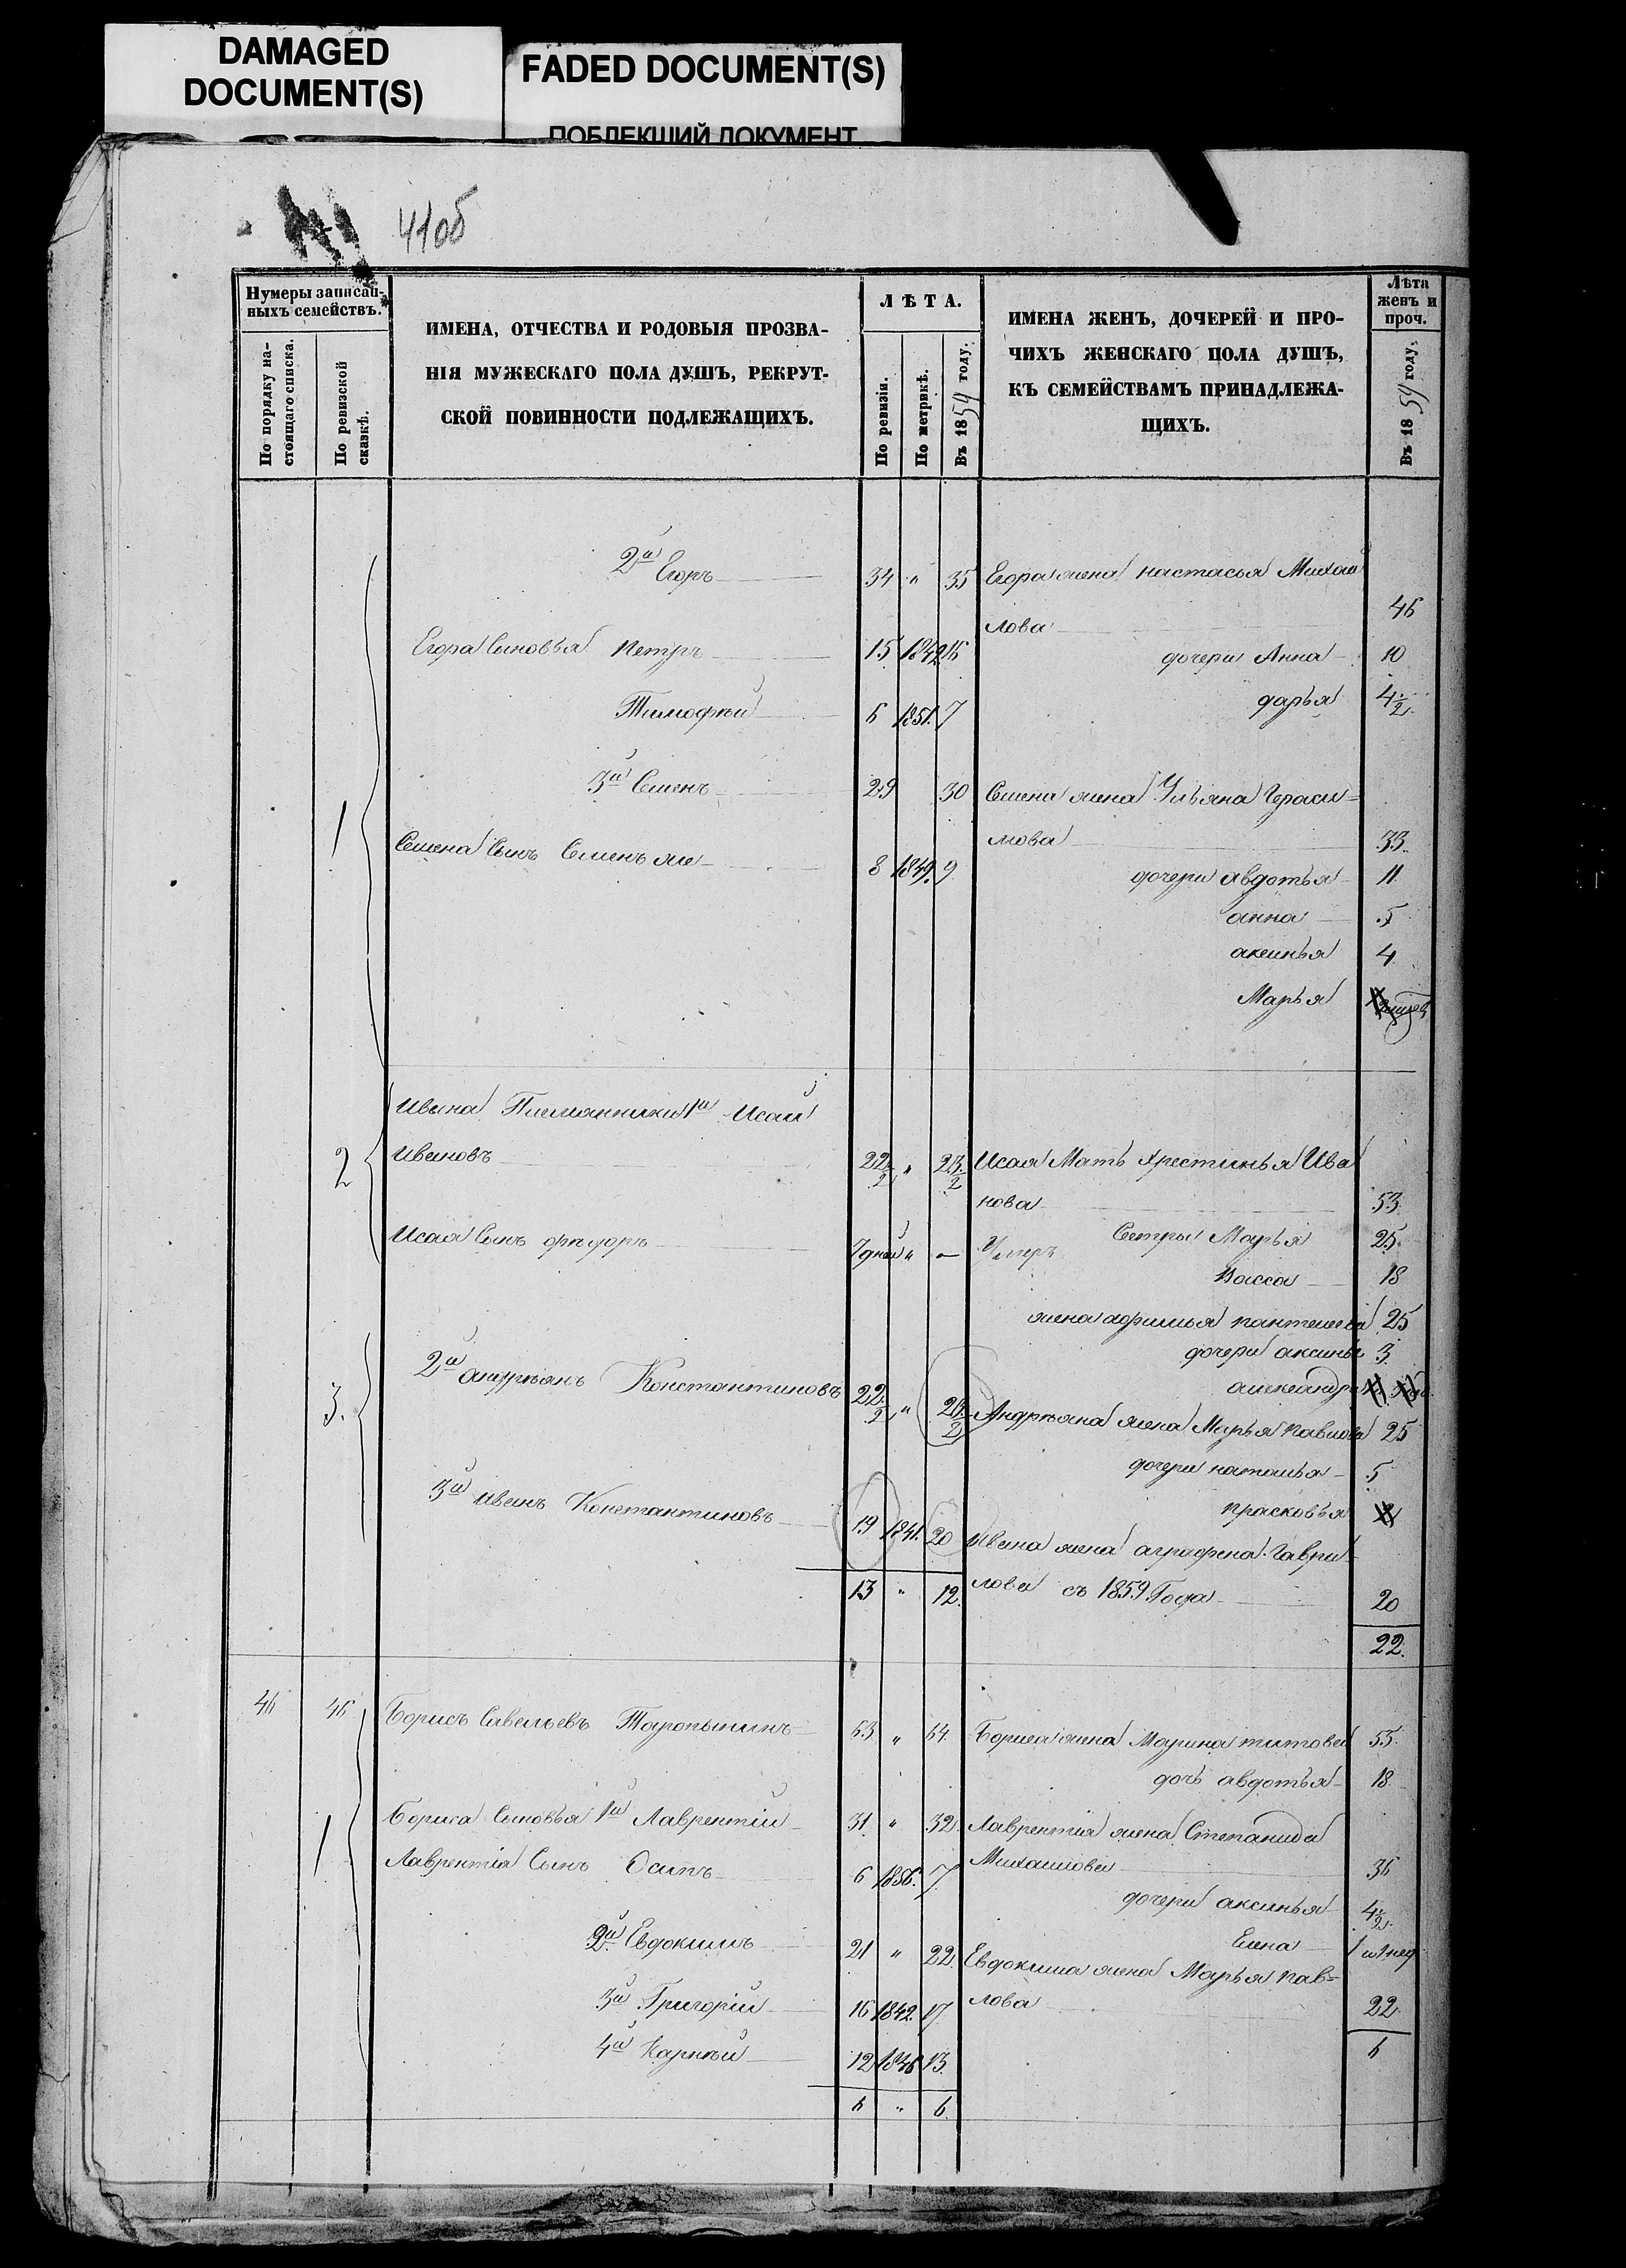 DAMAGED
DOCUMENT(S)
FADED DOCUMENT(S)
ПОБЛЕКШИЙ ДОКУМЕНТ
41об
Нумеры записан-
ныхъ семействъ.
По порядку на-
стоящаго списка.
По ревизской
сказкѣ.
ИМЕНА, ОТЧЕСТВА И РОДОВЫЯ ПРОЗВА-
НІЯ МУЖЕСКАГО ПОЛА ДУШЪ, РЕКРУТ-
СКОЙ ПОВИННОСТИ ПОДЛЕЖАЩИХЪ.
ЛѢТА.
По ревизіи.
По метрикѣ.
Въ 1859 году.
ИМЕНА ЖЕНЪ, ДОЧЕРЕЙ И ПРО-
ЧИХЪ ЖЕНСКАГО ПОЛА ДУШЪ,
КЪ СЕМЕЙСТВАМЪ ПРИНАДЛЕЖА-
ЩИХЪ.
Лѣта
женъ и
проч.
Въ 1859 году.
2й Егоръ 34 " 35 Егора жена настасья Михай
лова 46
Егора Сыновья Петръ 15 1842 16 дочери Анна 10
Тимофѣй 6 1851. 7 дарья 4½
3й Семенъ 29 30 Семена жена Ульяна Гераси-
1 мова 33
Семена Сынъ Семенъ же 8 1849. 9 дочери авдотья 11
анна 5
аксинья 4
Марья
Ивана Племянники 1й Исай
2 Ивановъ 22½ " 23½ Исая Мать Хрестинья Ива
нова 53
Исая Сынъ ѳедоръ 7 дней " — Умеръ Сестры Марья 25
Васса 18
жена афимья пантелеева 25
дочери аксинья 3
3. 2й андреянъ Константиновъ 22½ " александра
Андреяна жена Марья павлова 25
дочери наталья 5
3й иванъ Константиновъ 19 1841. 20 прасковья
Ивана жена аграфена Гаври-
13 " 12. лова съ 1859 Года 20
22.
46 46 Борисъ Савельевъ Таропынинъ 63 " 64. Бориса жена Марина титова 55.
дочь авдотья 18
1 Бориса Сыновья 1й Лаврентій 31. " 32. Лаврентія жена Степанида
Лаврентія Сынъ Осипъ 6 7 Михайлова 36
дочери аксинья 4½
2й Евдокимъ 21 " 22 Елена
Евдокима жена Марья пав-
3й Григорій 16 1842. 17 лова 22
4й Карнѣй 12 1846 13. 6
6 " 6.